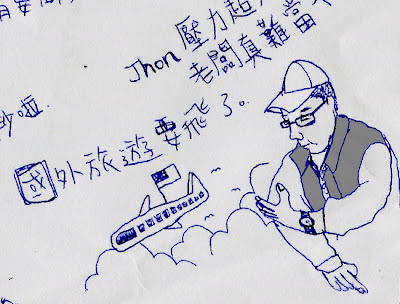 Jhon 壓力超
老闆真難當
啦.
國外旅遊要飛了。